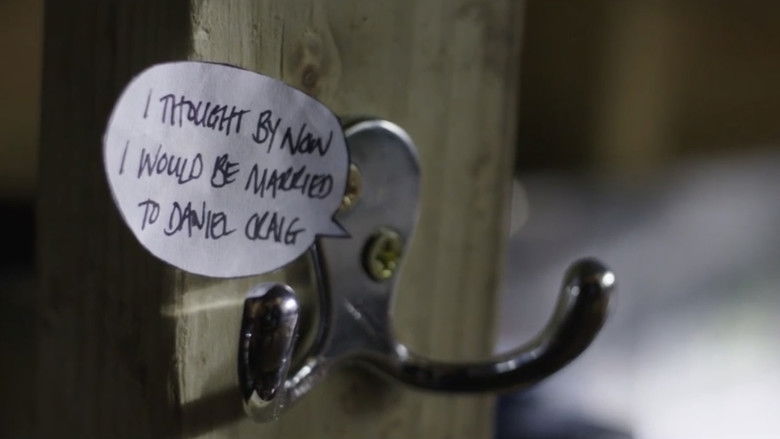 I THOUGHT BY NOW
I WOULD BE MARRIED
TO DANIEL CRAIG